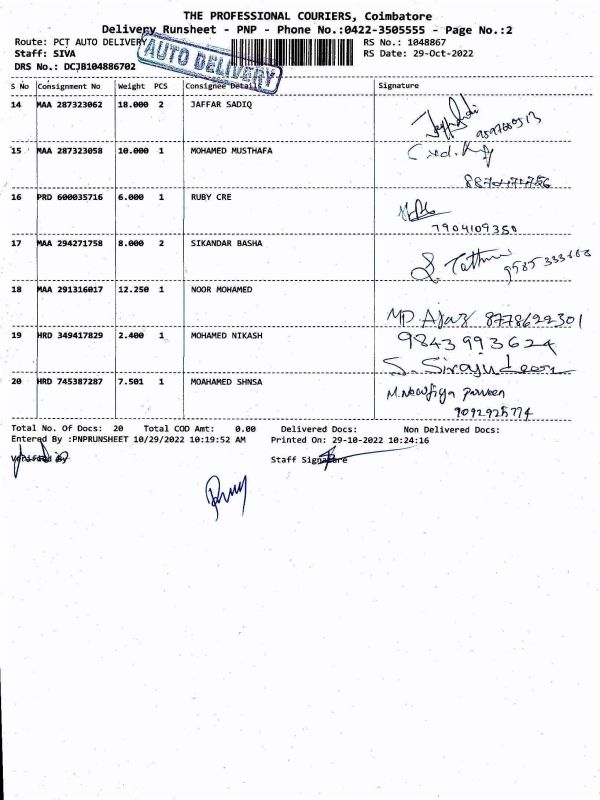 THE PROFESSIONAL COURIERS, Coimbatore
Delivery Runsheet - PNP - Phone No.:0422-3505555 - Page No.:2
Route: PCT AUTO DELIVERY
RS No.: 1048867
Staff: SIVA
RS Date: 29-Oct-2022
DRS No.: DCJB104886702
AUTO DELIVERY
S No Consignment No Weight PCS Consignee Details Signature
14 MAA 287323062 18.000 2 JAFFAR SADIQ
15 MAA 287323058 10.000 1 MOHAMED MUSTHAFA
16 PRD 600035716 6.000 1 RUBY CRE
7904109350
17 MAA 294271758 8.000 2 SIKANDAR BASHA
18 MAA 291316017 12.250 1 NOOR MOHAMED
MD. Ajaz 8778622301
19 HRD 349417829 2.400 1 MOHAMED NIKASH
9843993624
S. Sirajudeen
20 HRD 745387287 7.501 1 MOAHAMED SHNSA
9092925774
Total No. Of Docs: 20 Total COD Amt: 0.00 Delivered Docs: Non Delivered Docs:
Entered By :PNPRUNSHEET 10/29/2022 10:19:52 AM Printed On: 29-10-2022 10:24:16
Verified By
Staff Signature